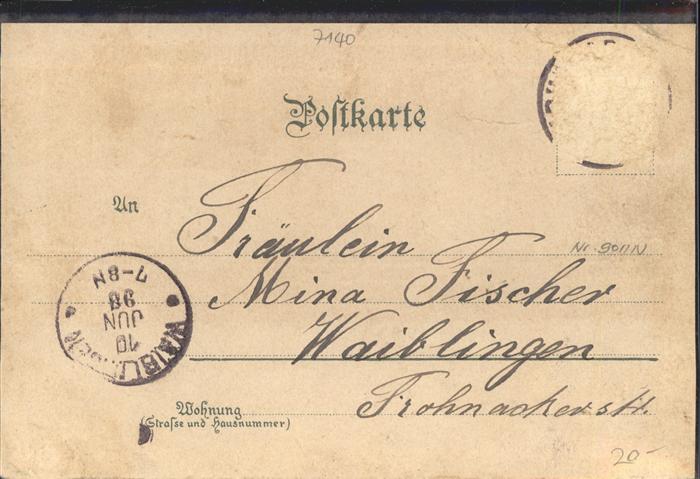 7140
Postkarte
An
Fräulein
Nr. 9011N
Mina Fischer
Waiblingen
WAIBLINGEN
10
JUN
98
7-8N
Wohnung
(Strasse und Hausnummer)
Frohnackerstr.
20-